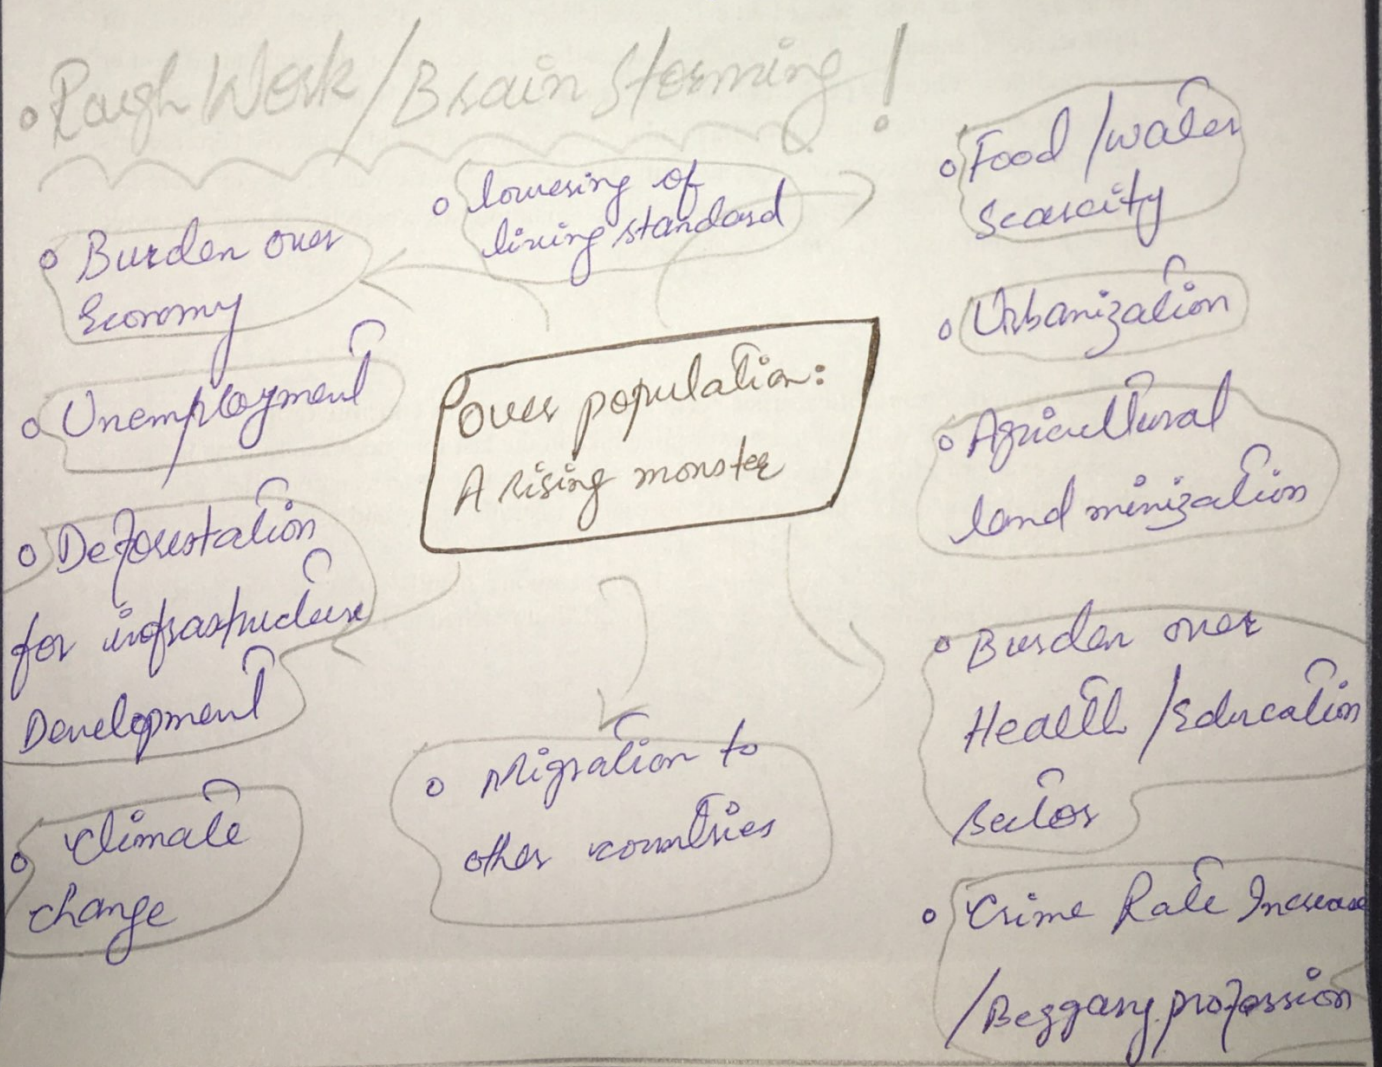 Rough Work/Brain Storming!
lowering of
living standard
Burden over
Economy
Unemployment
Deforestation
for infrastructure
Development
Climate
change
over population:
A rising monster
Migration to
other countries
Food/water
Scarcity
Urbanization
Agricultural
land minization
Burden over
Health/Education
Sector
Crime Rate Increase
/Beggary profession